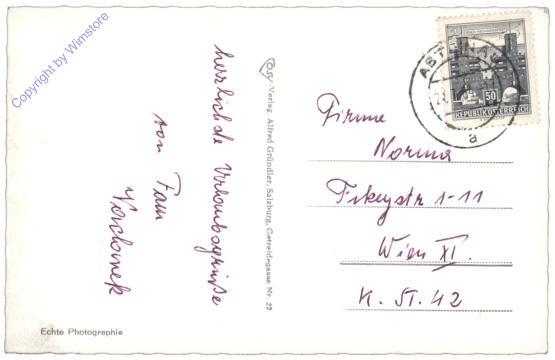 Copyright by Wimstore
herzlichste Urlaubsgrüße
von Fam
Echte Photographie
Verlag Alfred Gründler, Salzburg, Getreidegasse Nr. 22
50
REPUBLIK ÖSTERREICH
a
Firma
Norma
Fickeystr 1-11
Wien XI.
K. St. 42